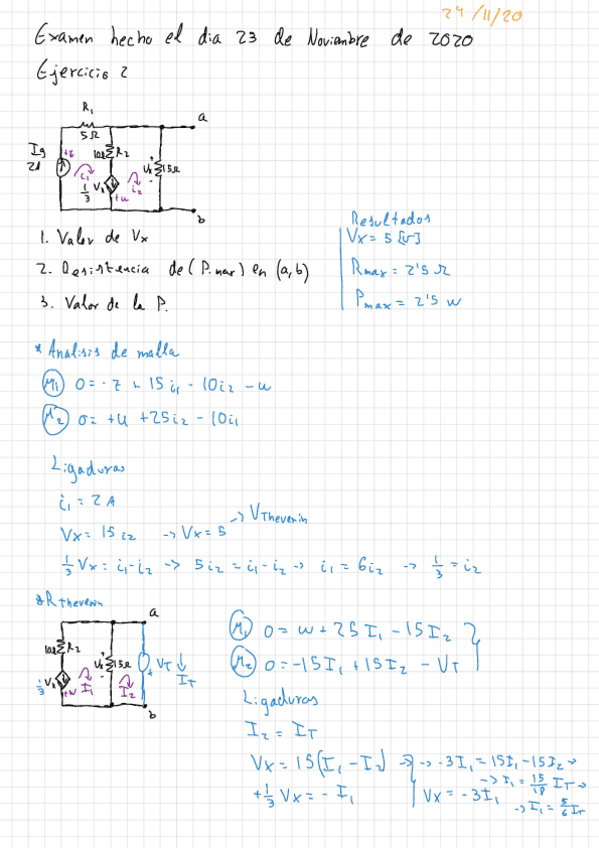 24/11/20
Examen hecho el dia 23 de Noviembre de 2020
Ejercicio 2
R1
5Ω
a
Ig
2A
+z
i1
10Ω
R2
1/3 Vx
+u
i2
Vx
15Ω
b
1. Valor de Vx
2. Resistencia de (P.max) en (a,b)
3. Valor de la P.
Resultados
Vx = 5 [v]
Rmax = 2'5 Ω
Pmax = 2'5 w
* Analisis de malla
M1 0 = -z + 15 i1 - 10 i2 - u
M2 0 = +u + 25 i2 - 10 i1
Ligaduras
i1 = 2A
Vx = 15 i2 -> Vx = 5 -> VThevenin
1/3 Vx = i1 - i2 -> 5 i2 = i1 - i2 -> i1 = 6 i2 -> 1/3 = i2
* RThevenin
a
10Ω
R2
1/3 Vx
+w
I1
Vx
15Ω
I2
+
VT
IT
b
M1 0 = w + 25 I1 - 15 I2
M2 0 = -15 I1 + 15 I2 - VT
Ligaduras
I2 = IT
Vx = 15(I1 - I2) -> -> -3I1 = 15I1 - 15I2 ->
-> I1 = 15/18 IT ->
+1/3 Vx = - I1
Vx = -3I1
-> I1 = 5/6 IT